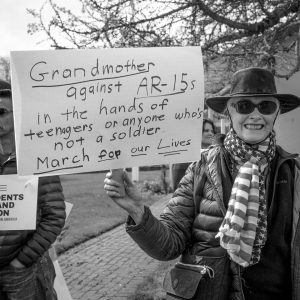 Grandmother
against AR-15s
in the hands of
teenagers or anyone who's
not a soldier.
March for our Lives